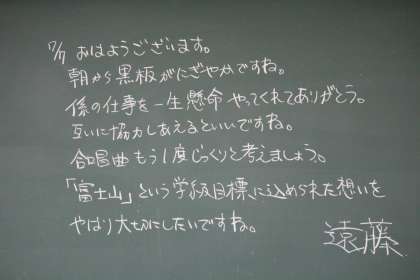 7/7 おはようございます。
朝から黒板がにぎやかですね。
係の仕事を一生懸命やってくれてありがとう。
互いに協力しあえるといいですね。
合唱曲もう1度じっくりと考えましょう。
「富士山」という学級目標に込められた想いを
やはり大切にしたいですね。
遠藤